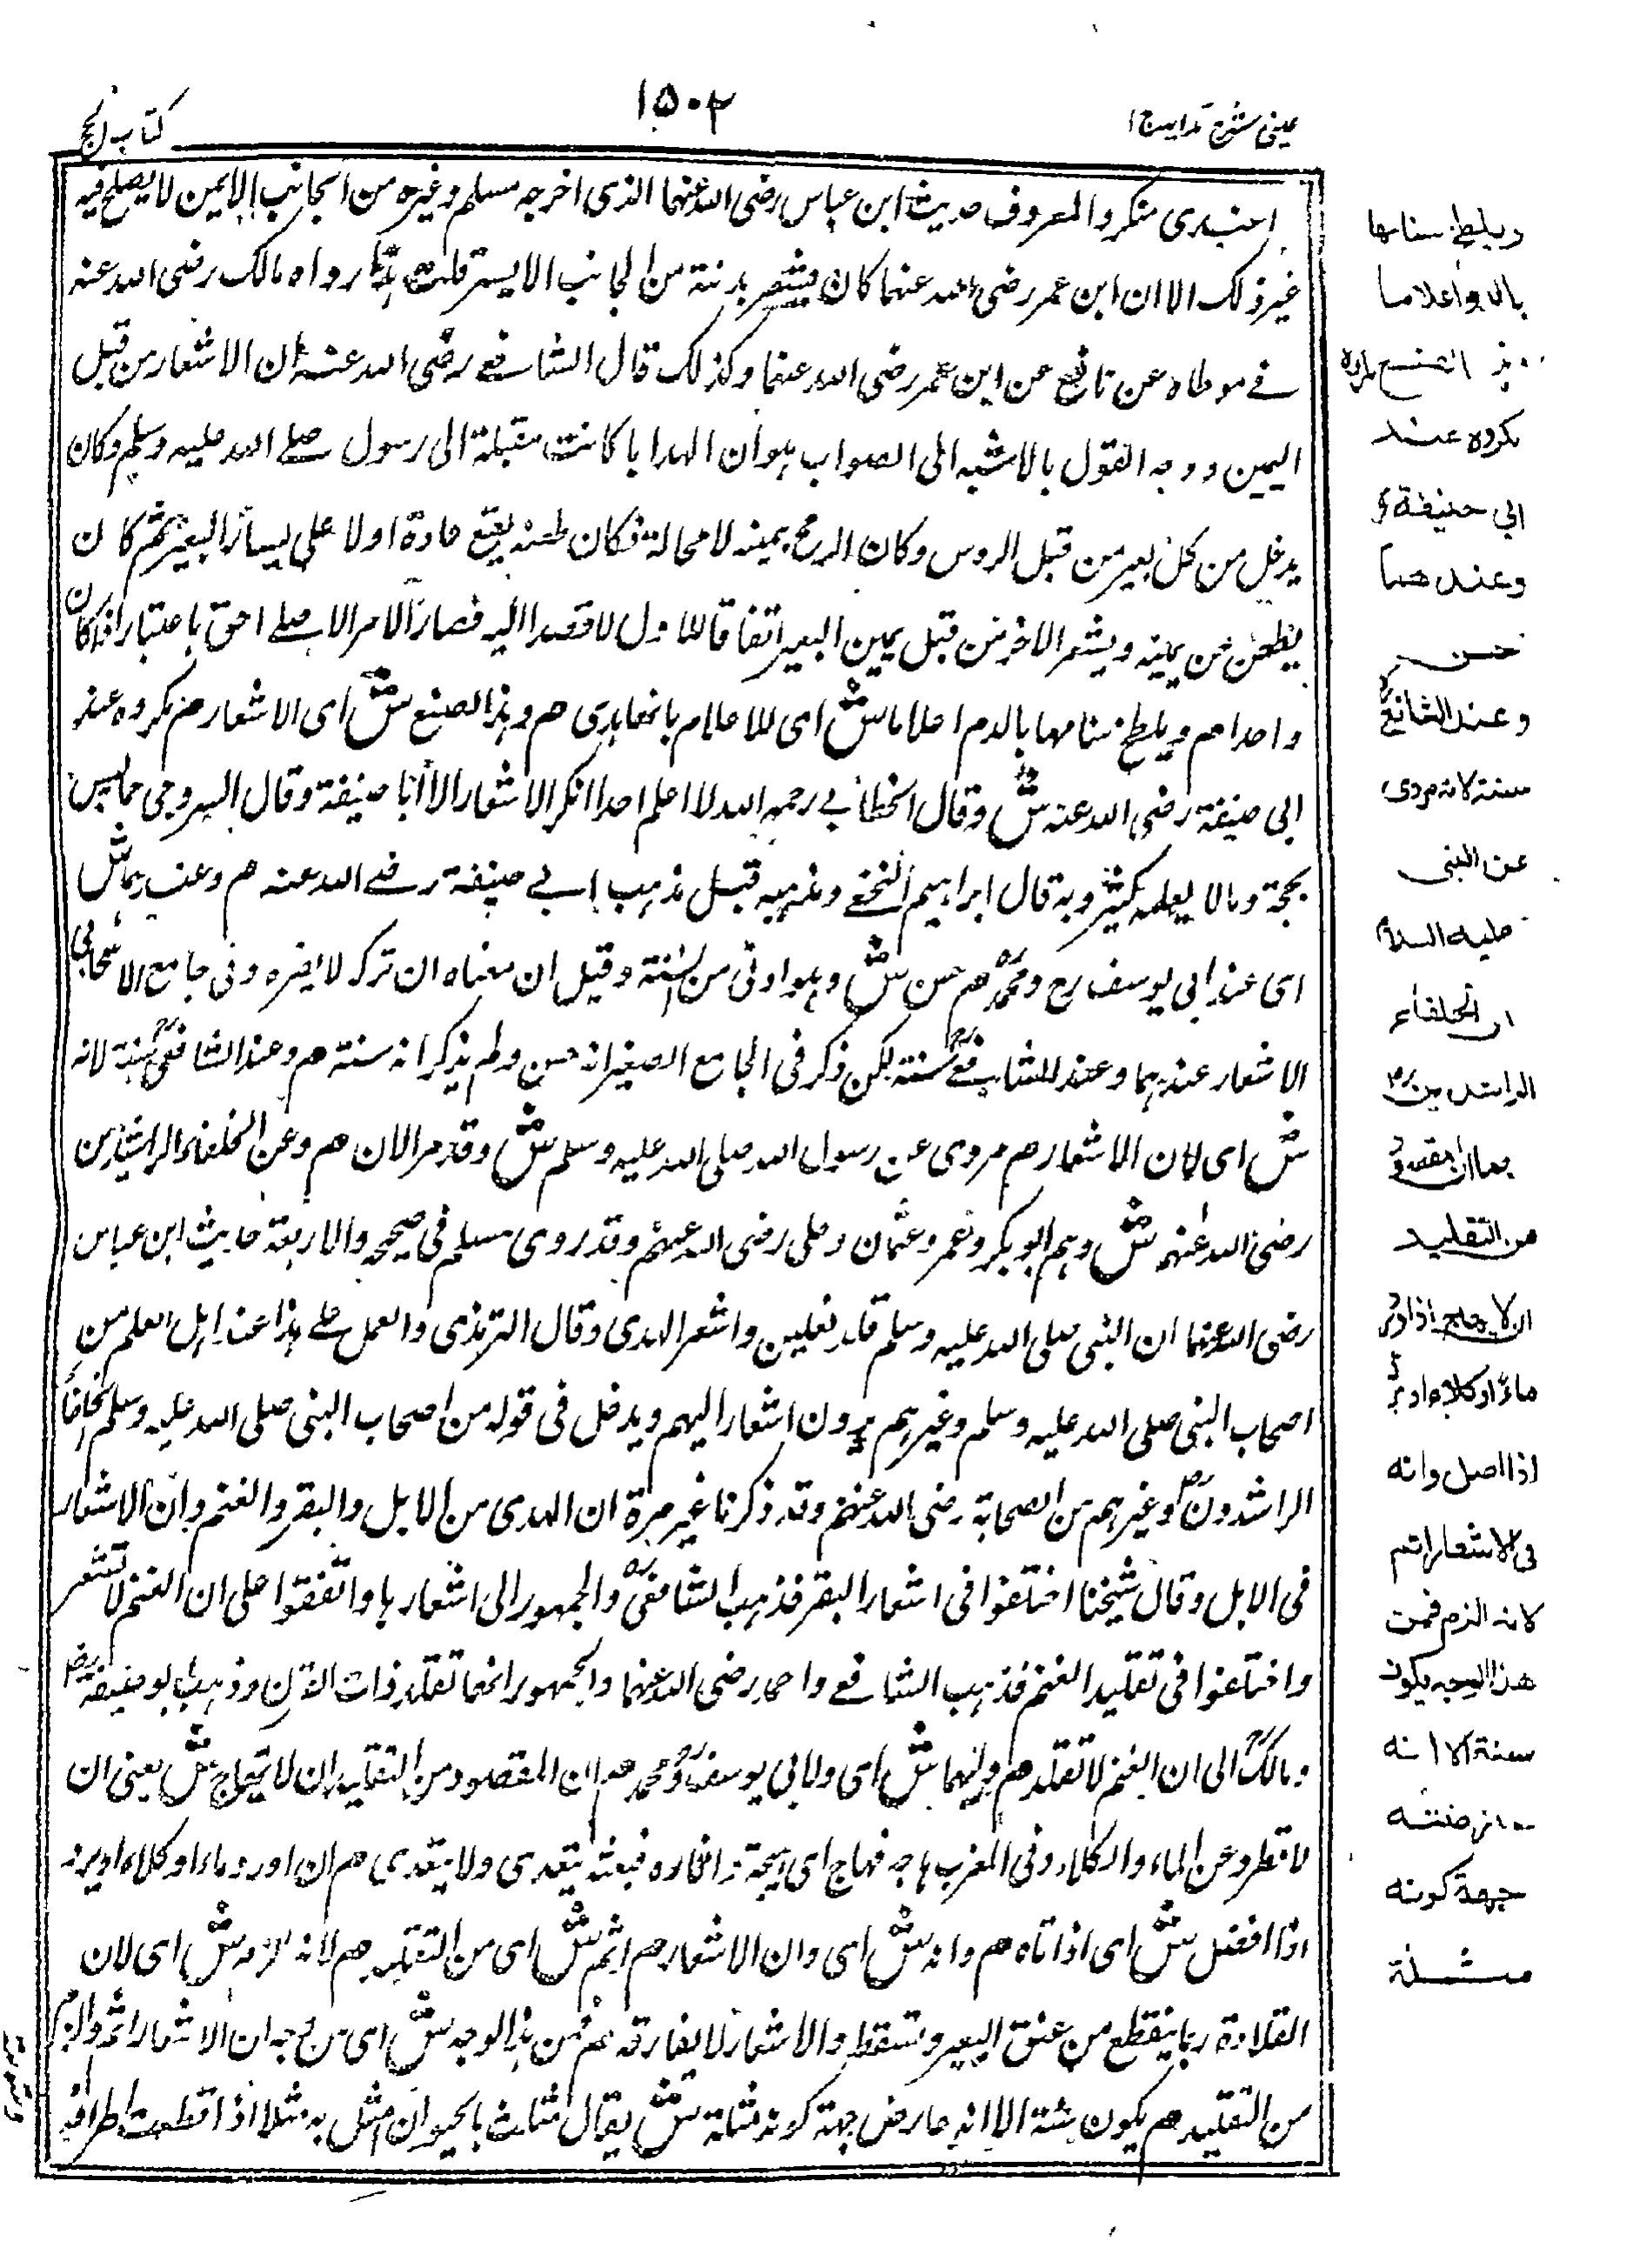 عینی شرح ہدایہ ج ا
۱۵۰۲
کتاب الحج
عندی منکر والمعروف حدیث ابن عباس رضی اللہ عنہما الذی اخرجہ مسلم وغیرہ من الجانب الایمن لا یصلح فیہ
غیر ذلک الا ان ابن عمر رضی اللہ عنہما کان یشعر بدنتہ من الجانب الایسر قلت ہذا رواہ مالک رضی اللہ عنہ
فے موطاہ عن نافع عن ابن عمر رضی اللہ عنہما وکذلک قال الشافعے رضی اللہ عنہ ان الاشعار من قبل
الیمین ووجہ القول بالاشبہ الی الصواب ہو ان الہدایا کانت مقبلۃ الی رسول صلے اللہ علیہ وسلم وکان
یدخل من کل بعیر من قبل الروس وکان الرمح بیمینہ لا محالۃ فکان طعنہ یقع عادۃ اولا علی یسار البعیر ثم کان
یطعن عن یمینہ ویشعر الاخر من قبل یمین البعیر اتفاقا للاول لا قصدا الیہ فصار الامر الاصلے احق باعتبار اذا کان
واحدا م ویلطخ سنامہا بالدم اعلاما ش ای للاعلام بانہا ہدی م وہذا الصنع ش ای الاشعار م مکروہ عند
ابی حنیفۃ رضی اللہ عنہ ش وقال الخطابی رحمہ اللہ لا اعلم احدا انکر الاشعار الا ابا حنیفۃ وقال السروجی ما لیس
بحجۃ وما لا یعلمہ کثیر وبہ قال ابراہیم النخعے ومذہبہ قبل مذہب ابے حنیفۃ رضے اللہ عنہ م وعندہما ش
ای عند ابی یوسف رح ومحمد م حسن ش وہو ادنی من السنۃ وقیل ان معناہ ان ترکہ لا یضرہ وفی جامع الاسبیجابی
الاشعار عندہما وعند للشافعے سنۃ لکن ذکر فی الجامع الصغیر انہ حسن ولم یذکر انہ سنتہ م وعند الشافعی سنۃ لانہ
ش ای لان الاشعار م مروی عن رسول اللہ صلی اللہ علیہ وسلم ش وقد مر الان م وعن الخلفاء الراشدین
رضی اللہ عنہم ش وہم ابو بکر وعمر وعثمان وعلی رضی اللہ عنہم وقد روی مسلم فی صحیحہ والاربعۃ حدیث ابن عباس
رضی اللہ عنہما ان النبی صلی اللہ علیہ وسلم قلد نعلین واشعر الہدی وقال الترمذی والعمل علے ہذا عند اہل العلم من
اصحاب النبی صلی اللہ علیہ وسلم وغیرہم یرون اشعار الیہم ویدخل فی قولہ من اصحاب النبی صلی اللہ علیہ وسلم الخلفاء
الراشدون وغیرہم من الصحابۃ رضی اللہ عنہم وقد ذکرنا غیر مرۃ ان الہدی من الابل والبقر والغنم وان الاشعار
فی الابل وقال شیخنا اختلفوا فی اشعار البقر فذہب الشافعی والجمہور الی اشعارہا واتفقوا علی ان الغنم لا تشعر
واختلفوا فی تقلید الغنم فذہب الشافعے واحمد رضی اللہ عنہما والجمہور انہا تقلد ذات القرن وذہب ابو حنیفۃ رض
ومالک الی ان الغنم لا تقلد م ولہما ش ای ولابی یوسف ومحمد م ان المقصود من التقلید ان لا یہاج ش یعنی ان
لا تطرد عن الماء والکلاء وفی المغرب ہاجہ فہاج ای ہیجہ واثارہ فبعثہ یتعدی ولا یتعدی م ان اورد ماء او کلاء او یرد
اذا افضل ش ای اذا تاہ م وانہ ش ای وان الاشعار م اتم ش ای من التقلید م لانہ الزم ش ای لان
القلادۃ ربما ینقطع من عنق البعیر وتسقط والاشعار لا یفارقہ م فمن ہذا الوجہ ش ای من وجہ ان الاشعار اتم والزم
من التقلید م یکون سنۃ الا انہ عارض جہۃ کونہ مثلۃ ش یقال مثلت بالحیوان امثل بہ مثلا اذا قطعت اطرافہ
ویلطخ سنامها
بالدم اعلاما
الصنع
مکروہ عند
ابی حنیفۃ
وعندهما
حسن
وعند الشافعی
سنۃ لانہ مروی
عن النبی
علیہ السلام
الخلفاء
الراشدین
المقصود
من التقلید
ان لا یهاج اذا ورد
ماء او کلاء او یرد
اذا اصل وانه
فی الاشعار اتم
لانہ الزم فمن
هذا الوجہ یکون
سنۃ الا انه
جهۃ کونه
مثلۃ